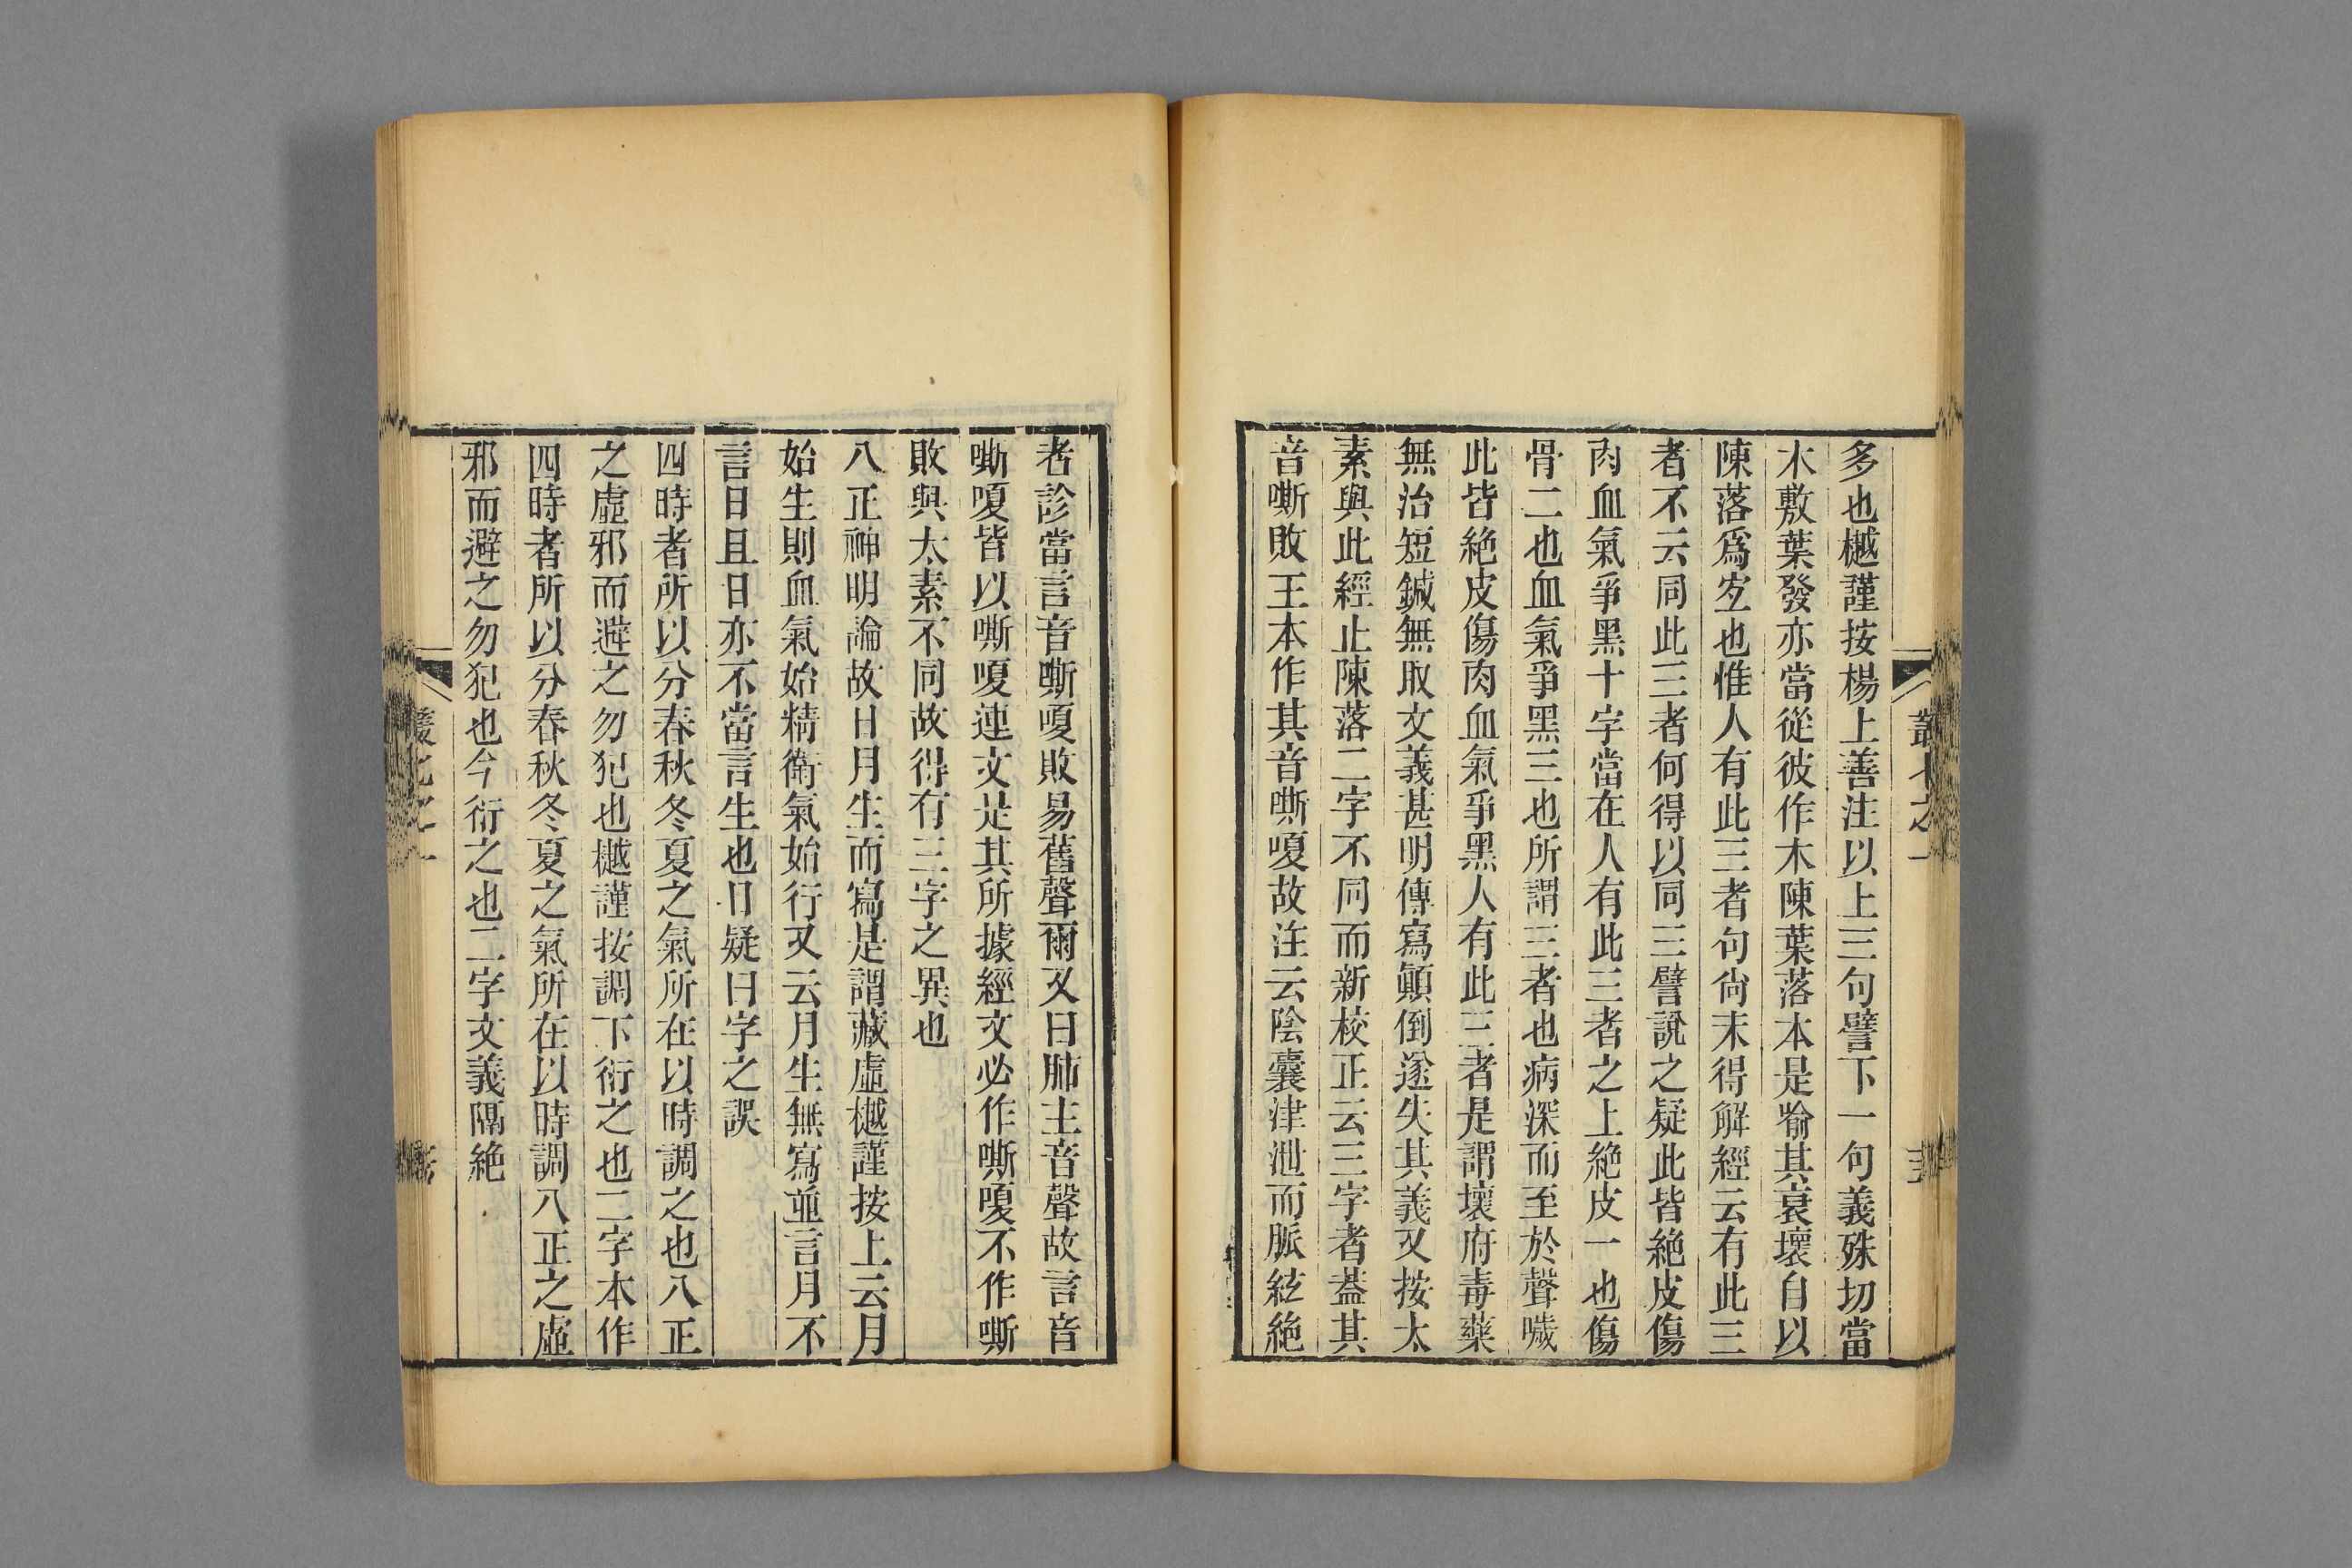 多也樾謹按楊上善注以上三句譬下一句義殊切當
木敷葉發亦當從彼作木陳葉落本是喻其衰壞自以
陳落爲㝎也惟人有此三者句尙未得解經云有此三
者不云同此三者何得以同三譬說之疑此皆絶皮傷
肉血氣爭黑十字當在人有此三者之上絶皮一也傷
骨二也血氣爭黑三也所謂三者也病深而至於聲噦
此皆絶皮傷肉血氣爭黑人有此三者是謂壞府毒藥
無治短鍼無取文義甚明傳寫顚倒遂失其義又按太
素與此經止陳落二字不同而新校正云三字者葢其
音嘶敗王本作其音嘶嗄故注云陰囊津泄而脈絃絶
者診當言音嘶嗄敗易舊聲爾又曰肺主音聲故言音
嘶嗄皆以嘶嗄連文是其所據經文必作嘶嗄不作嘶
敗與太素不同故得有三字之異也
八正神明論故日月生而寫是謂藏虛樾謹按上云月
始生則血氣始精衛氣始行又云月生無寫並言月不
言日且日亦不當言生也日疑曰字之誤
四時者所以分春秋冬夏之氣所在以時調之也八正
之虛邪而避之勿犯也樾謹按調下衍之也二字本作
四時者所以分春秋冬夏之氣所在以時調八正之虛
邪而避之勿犯也今衍之也二字文義隔絶